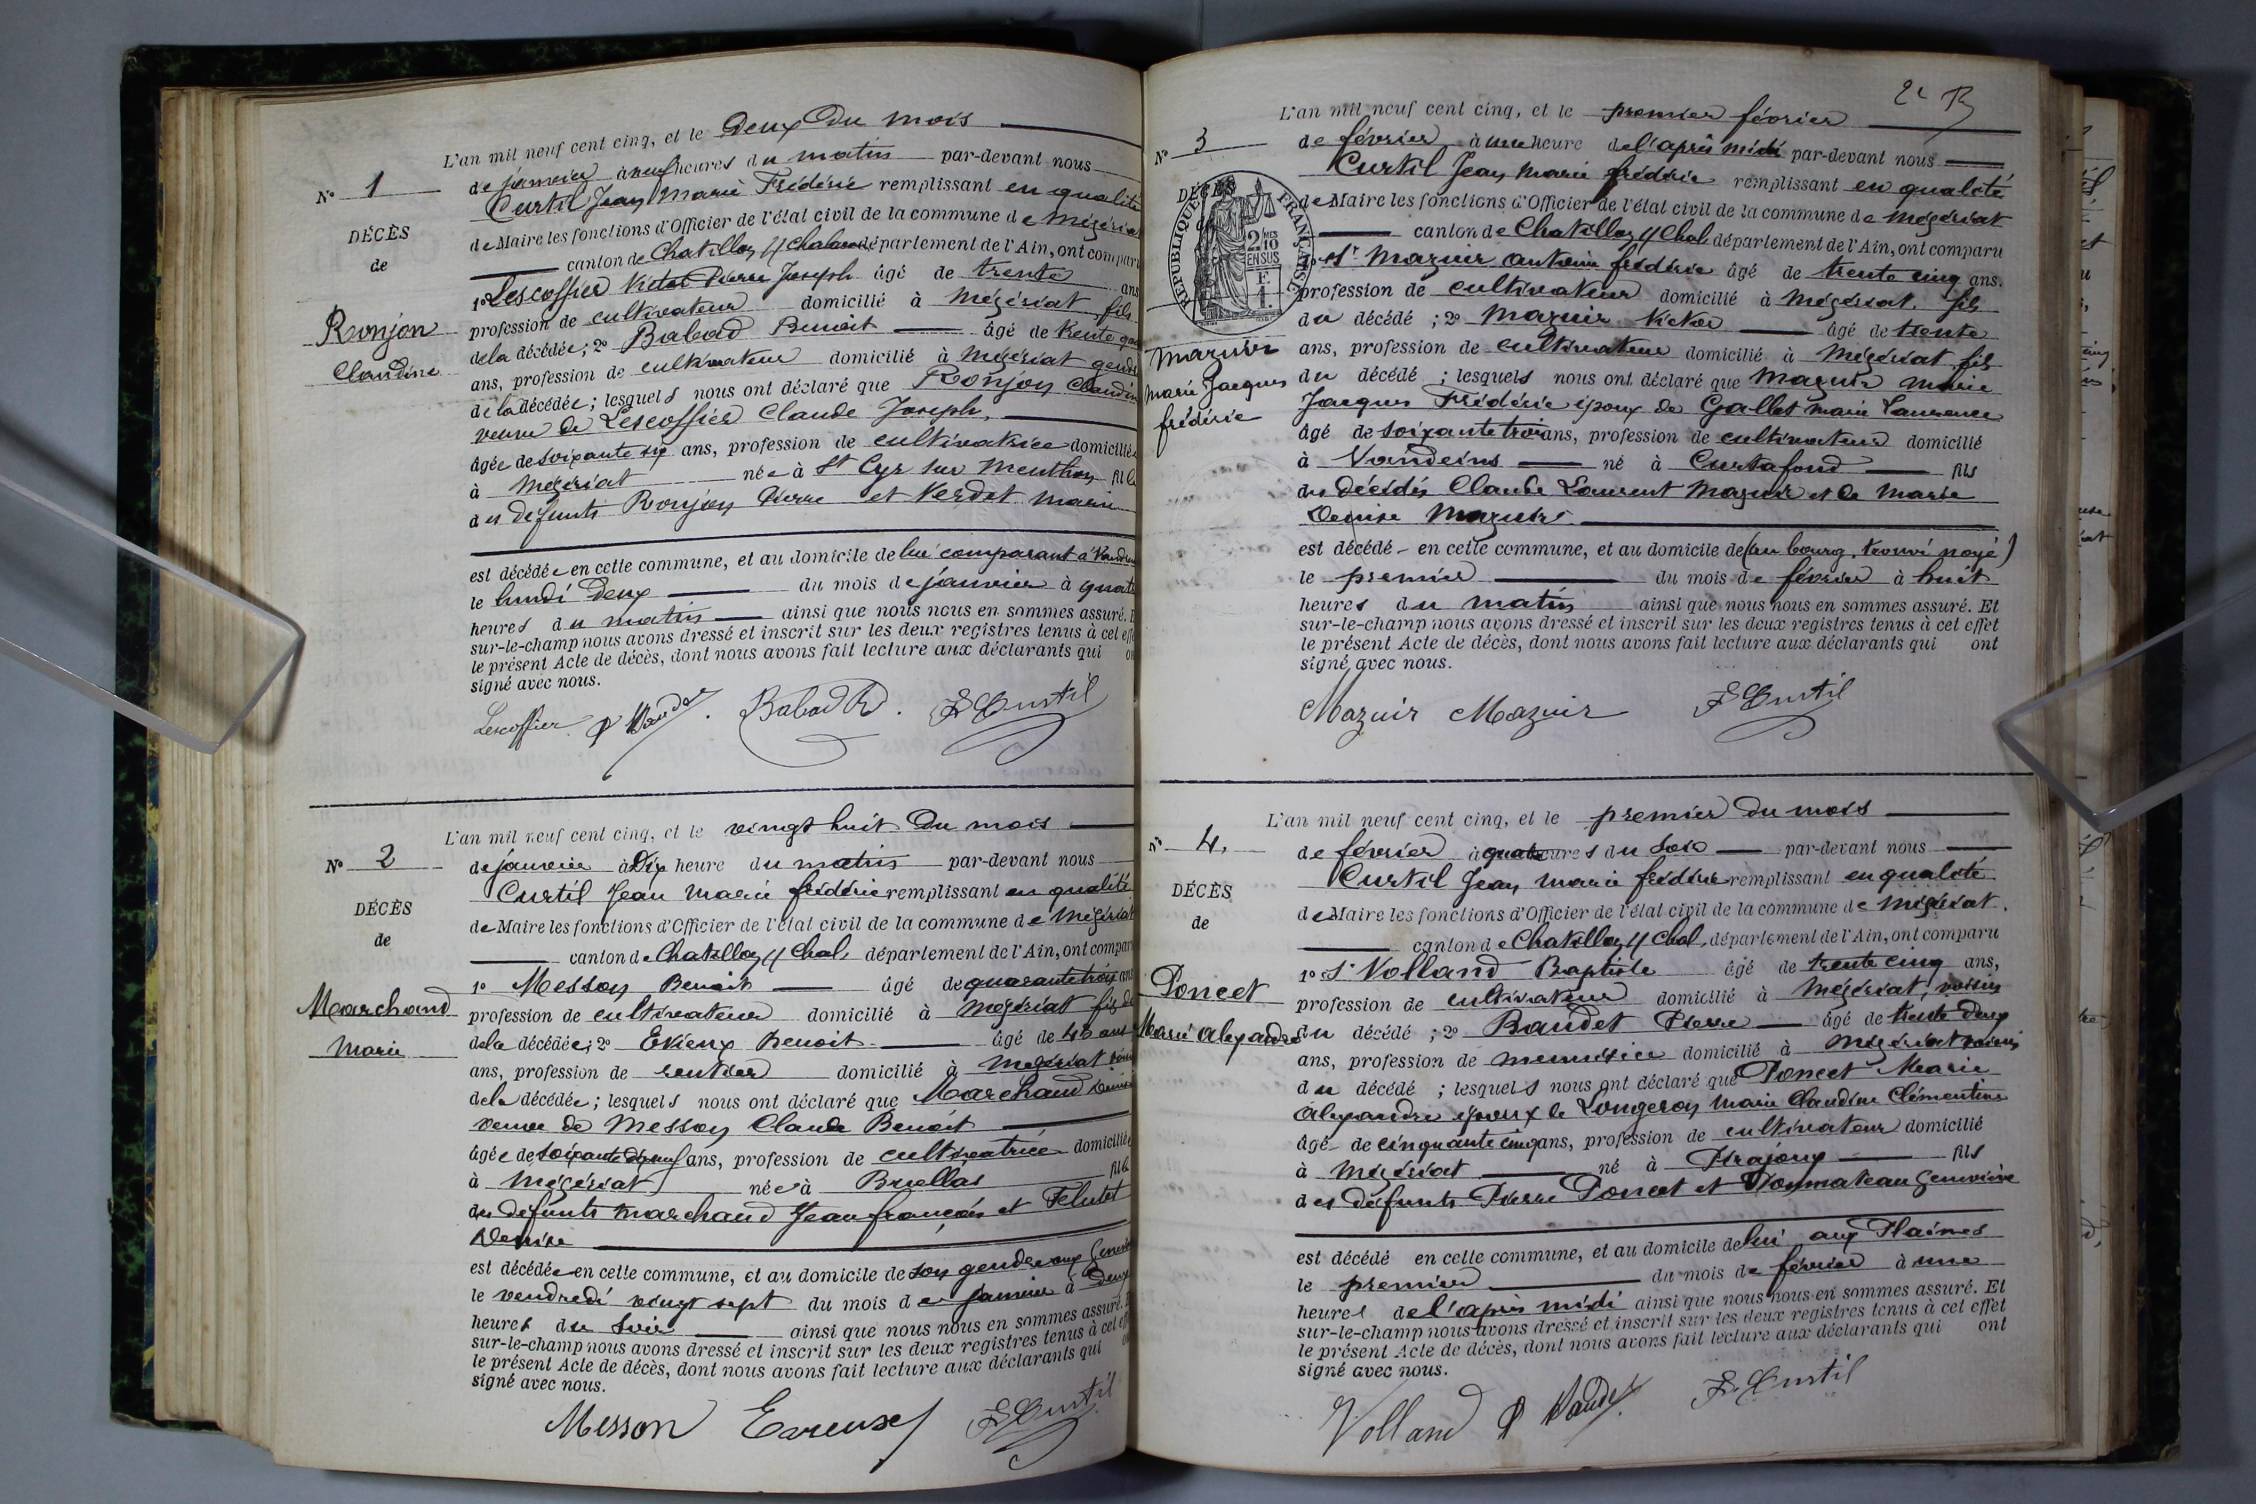 L'an mil neuf cent cinq, et le Deux Du mois
N° 1
de janvier à neuf heures du matin par-devant nous
Curtil Jean Marie Frédéric remplissant en qualité
de Maire les fonctions d'Officier de l'état civil de la commune de Mézériat
DÉCÈS
de
canton de Chatillon s/ Chalar département de l'Ain, ont comparu
1° Lescoffier Victor Pierre Joseph âgé de trente ans
profession de cultivateur domicilié à Mézériat, fils
Ronjon
Claudine
de la décédée; 2° Babad Benoit âgé de trente
ans, profession de cultivateur domicilié à Mézériat gendre
de la décédée; lesquels nous ont déclaré que Ronjon Claudine
veuve de Lescoffier Claude Joseph,
âgée de soixante six ans, profession de cultivatrice domiciliée
à Mézériat née à St Cyr sur Menthon fille
des défunts Ronjon Pierre et Verdet Marie
est décédée en cette commune, et au domicile de lui comparant à
le lundi Deux du mois de janvier à quatre
heures du matin ainsi que nous nous en sommes assuré. Et
sur-le-champ nous avons dressé et inscrit sur les deux registres tenus à cet effet
le présent Acte de décès, dont nous avons fait lecture aux déclarants qui ont
signé avec nous.
Lescoffier Babad B. F Curtil
L'an mil neuf cent cinq, et le vingt huit Du mois
N° 2
de janvier à Dix heure du matin par-devant nous
Curtil Jean Marie frédéric remplissant en qualité
DÉCÈS
de
de Maire les fonctions d'Officier de l'état civil de la commune de Mézériat
canton de Chatillon s/ Chal, département de l'Ain, ont comparu
1° Messon Benoit âgé de quarante trois ans
Marchand
Marie
profession de cultivateur domicilié à Mézériat fils de
de la décédée; 2° Evieux Benoit âgé de 40 ans
ans, profession de rentier domicilié à Mézériat
de la décédée; lesquels nous ont déclaré que Marchand
veuve de Messon Claude Benoit
âgée de soixante dix neuf ans, profession de cultivatrice domiciliée
à Mézériat née à Buellas fille
des défunts Marchand Jean françois et Felutet
Denise
est décédée en cette commune, et au domicile de son gendre aux
le vendredi vingt sept du mois de janvier à Deux
heures du soir ainsi que nous nous en sommes assuré. Et
sur-le-champ nous avons dressé et inscrit sur les deux registres tenus à cet effet
le présent Acte de décès, dont nous avons fait lecture aux déclarants qui
signé avec nous.
Messon Evieux F Curtil
2e B
L'an mil neuf cent cinq, et le premier février
N° 3
de février à une heure de l'après midi par-devant nous
Curtil Jean Marie frédéric remplissant en qualité
DÉCÈS
de Maire les fonctions d'Officier de l'état civil de la commune de Mézériat
RÉPUBLIQUE FRANÇAISE
2/10 MES EN SUS
F. 1.
canton de Chatillon s/ Chal département de l'Ain, ont comparu
1° Sr Mazuir Antoine frédéric âgé de trente cinq ans.
profession de cultivateur domicilié à Mézériat, fils
du décédé; 2° Mazuir Victor âgé de trente
Mazuir
Marie Jacques
frédéric
ans, profession de cultivateur domicilié à Mézériat fils
du décédé; lesquels nous ont déclaré que Mazuir Marie
Jacques Frédéric époux de Gallet Marie Laurence
âgé de soixante trois ans, profession de cultivateur domicilié
à Vandeins né à Curtafond fils
des décédés Claude Laurent Mazuir et de Marie
Denise Mazuir
est décédé en cette commune, et au domicile de (au bourg, trouvé noyé)
le premier du mois de février à huit
heures du matin ainsi que nous nous en sommes assuré. Et
sur-le-champ nous avons dressé et inscrit sur les deux registres tenus à cet effet
le présent Acte de décès, dont nous avons fait lecture aux déclarants qui ont
signé avec nous.
Mazuir Mazuir F Curtil
L'an mil neuf cent cinq, et le premier Du mois
N° 4.
de février à quatre heures du soir par-devant nous
Curtil Jean Marie frédéric remplissant en qualité
DÉCÈS
de
de Maire les fonctions d'Officier de l'état civil de la commune de Mézériat.
canton de Chatillon s/ Chal, département de l'Ain, ont comparu
1° Sr Volland Baptiste âgé de trente cinq ans,
Poncet
Marie Alexandre
profession de cultivateur domicilié à Mézériat, voisin
du décédé; 2° Baudet Pierre âgé de trente Deux
ans, profession de menuisier domicilié à Mézériat voisin
du décédé; lesquels nous ont déclaré que Poncet Marie
Alexandre époux de Longeron Marie Claudine Clémentine
âgé de cinquante cinq ans, profession de cultivateur domicilié
à Mézériat né à Pirajoux fils
des défunts Pierre Poncet et Geneviève
est décédé en cette commune, et au domicile de lui aux Plaines
le premier du mois de février à une
heures de l'après midi ainsi que nous nous en sommes assuré. Et
sur-le-champ nous avons dressé et inscrit sur les deux registres tenus à cet effet
le présent Acte de décès, dont nous avons fait lecture aux déclarants qui ont
signé avec nous.
Volland P Baudet F. Curtil